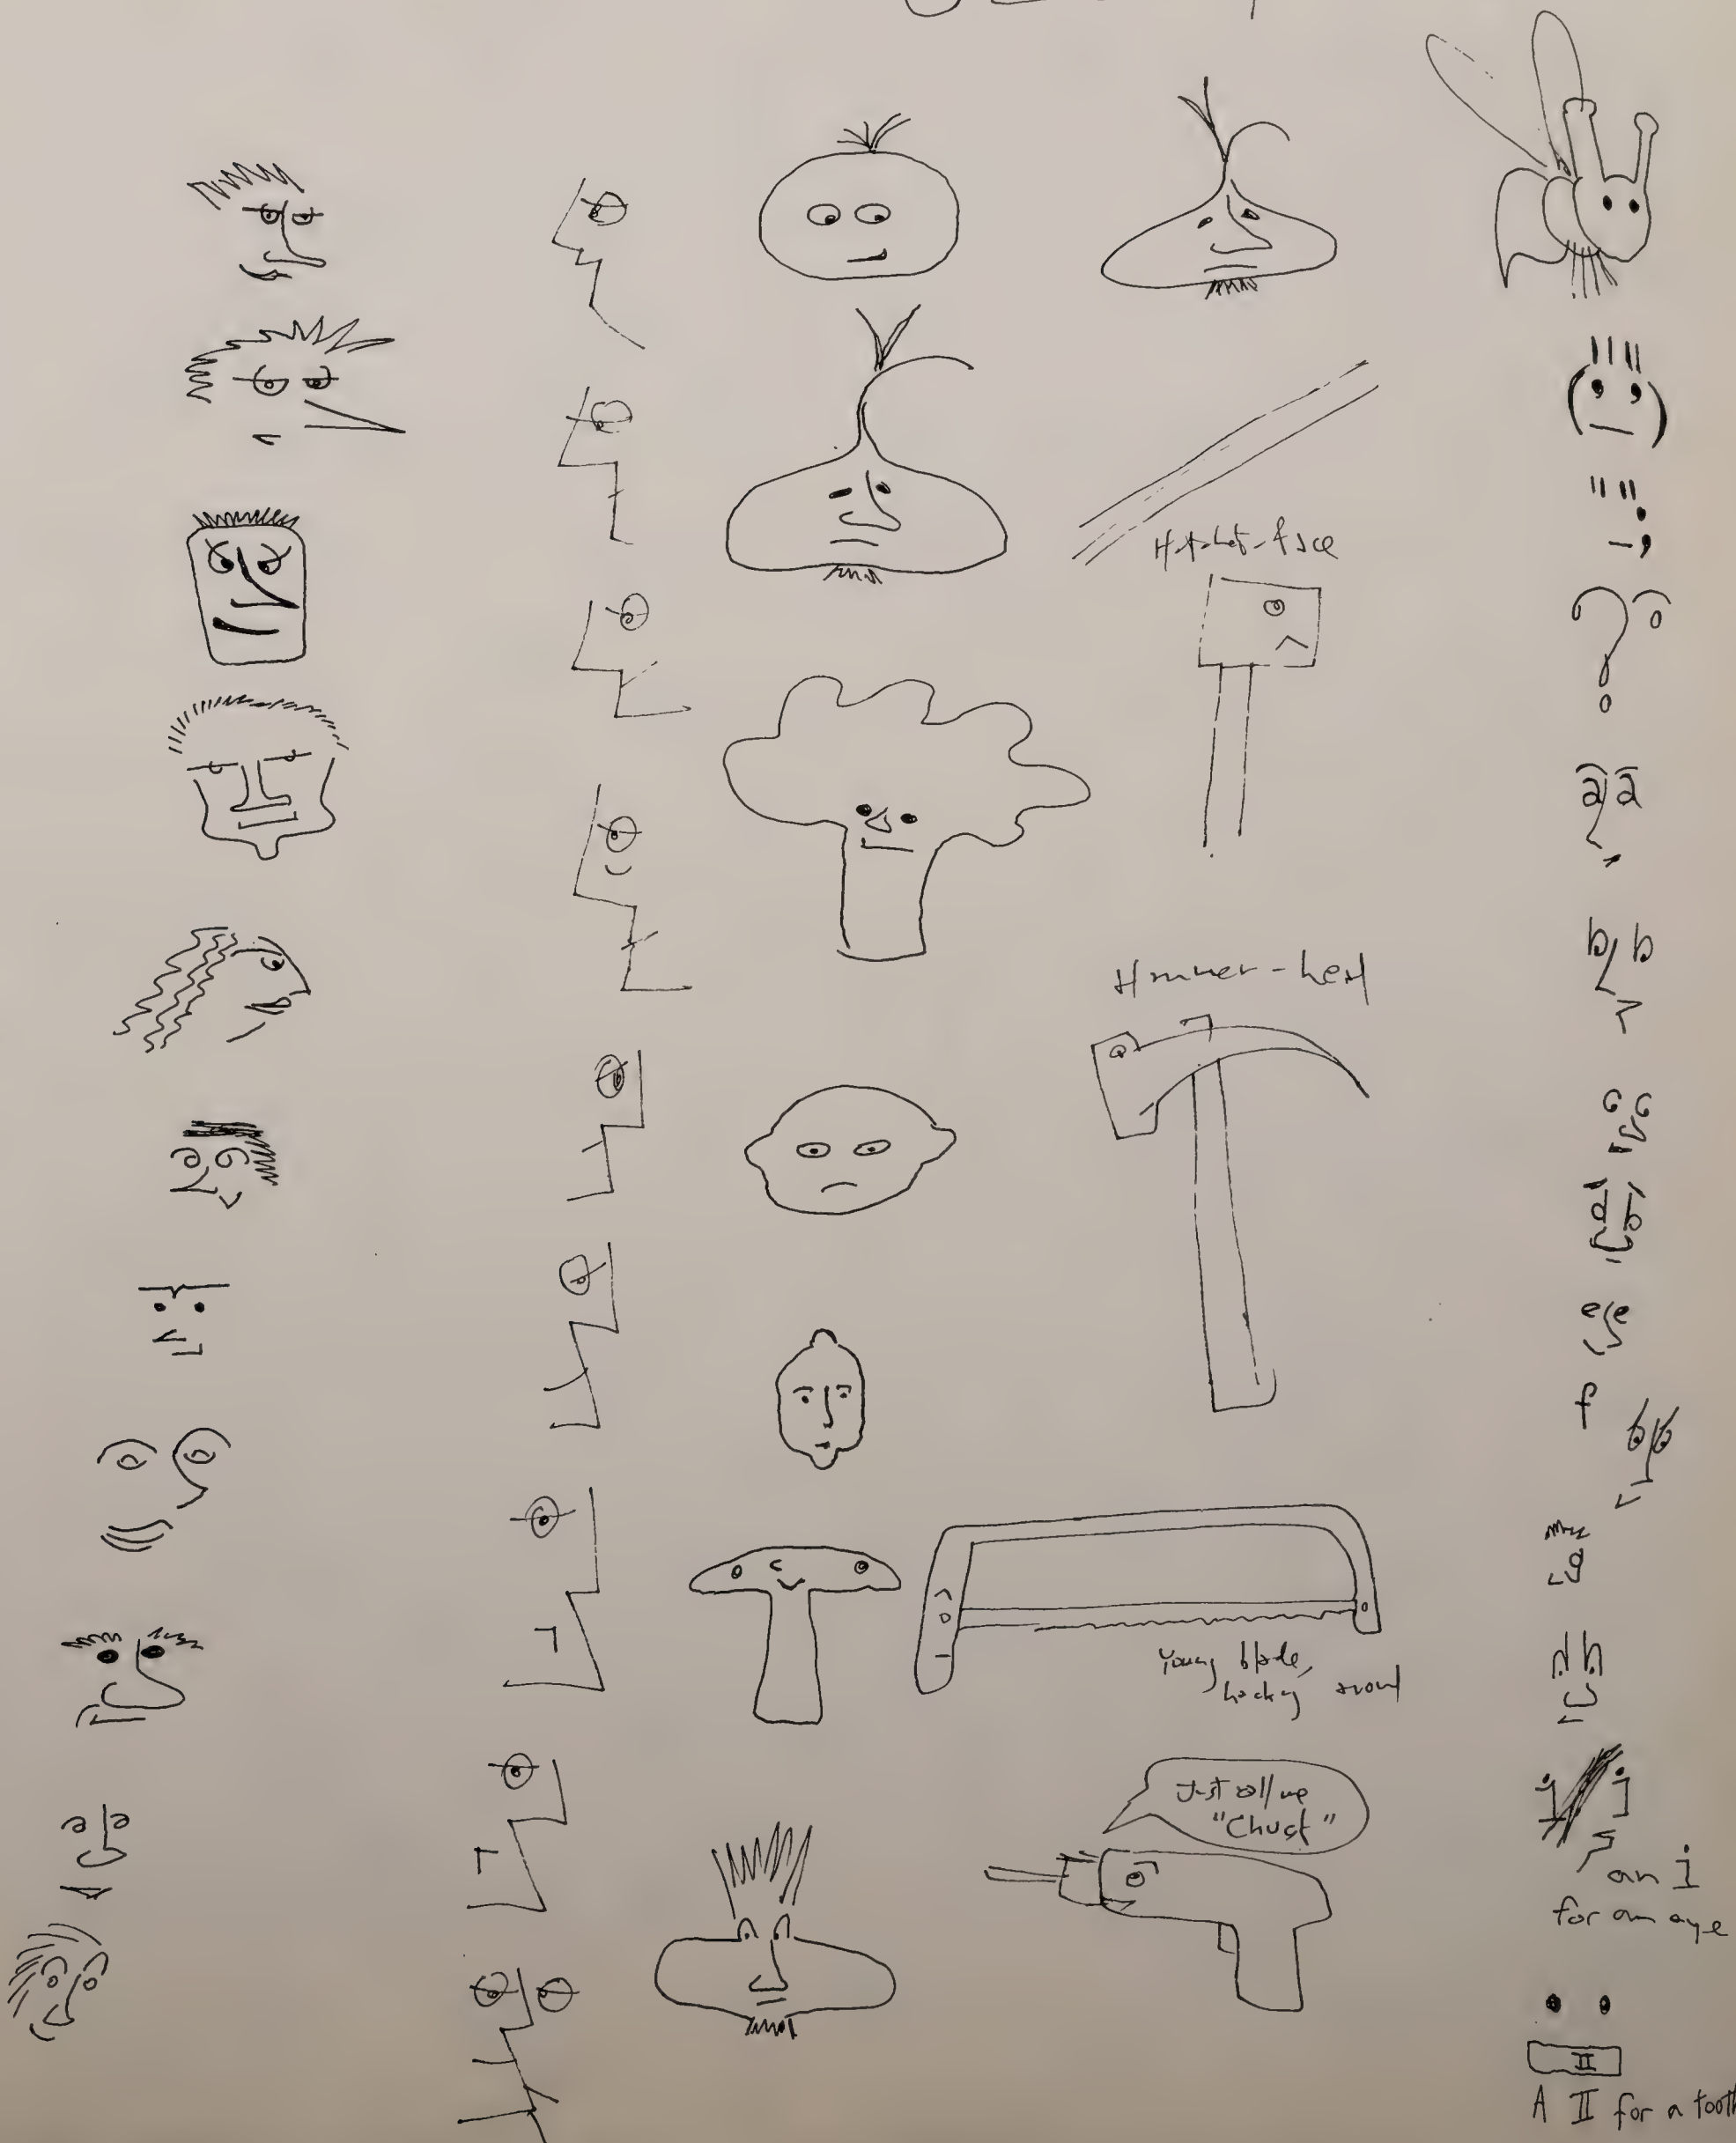 Hatchet-face
Hammer-head
Young blade,
hacking around
Just call me
"Chuck"
a a
b b
c c
d b
e e
f
b b
a
d h
i j
an i
for an eye
II
A II for a tooth